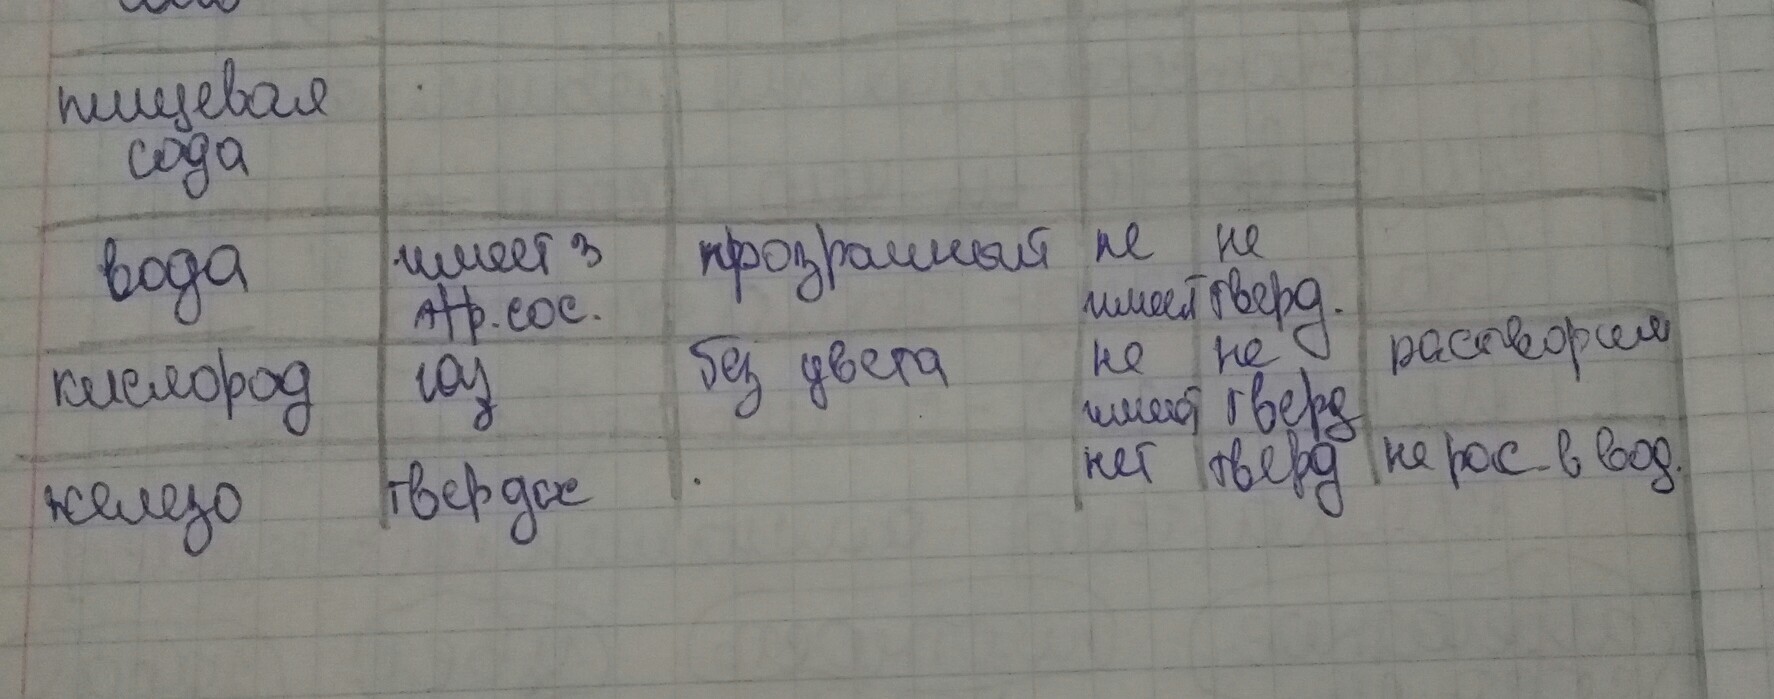 пищевая
сода
вода имеет 3 прозрачный не не
Агр. сос. имеет тверд.
кислород газ без цвета не не растворим
имеет тверд
железо твердое нет тверд не рас. в вод.